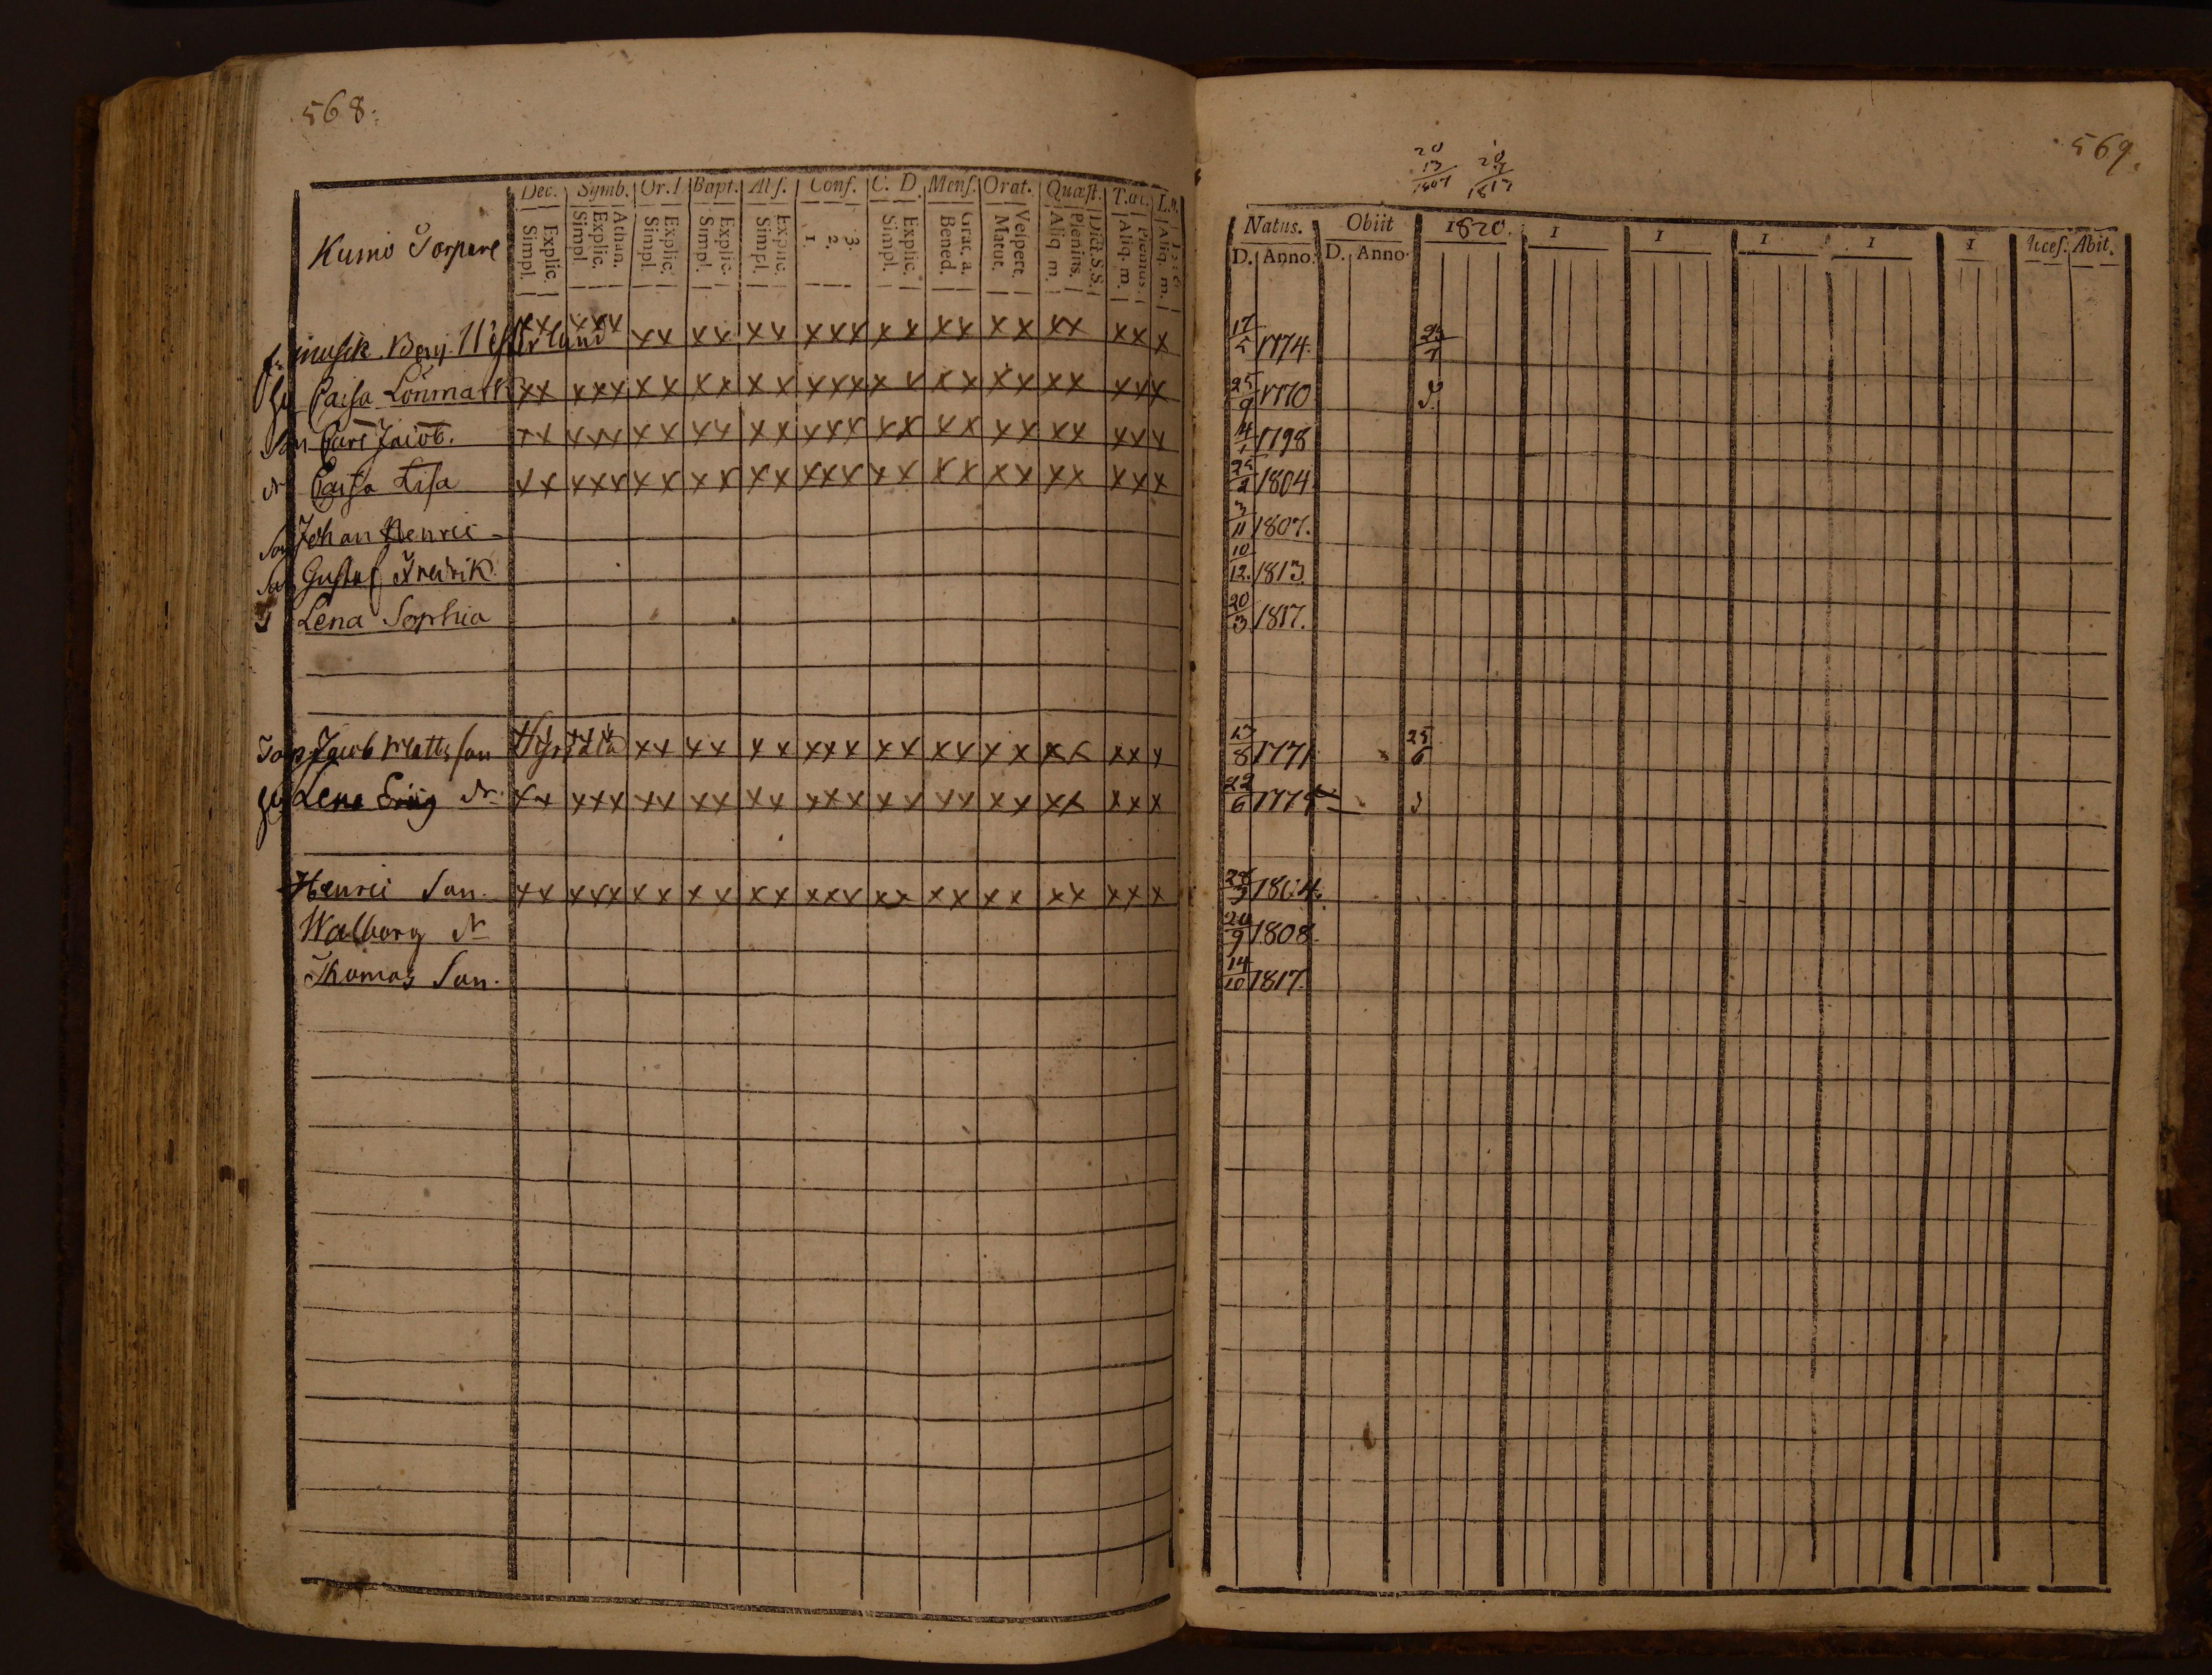 568.
Dec. Symb. Or. Bapt. Abs. Conf. C. D. Mens. Orat. Quæst. T. œc. L. n.
Kumo Torpare
Explic. Simpl. Athan. Explic. Simpl. Explic. Simpl. Explic. Simpl. Explic. Simpl. 3. 2. 1. Explic. Simpl. Grac. a. Bened. Vespert. Matut. Dict. S. S. Plenius. Aliq. m. Plenius. Aliq. m. Aliq. m.
f. musik. Benj. Westerlund xx xxx xx xx xx xxx xx xx xx xx xx x
hu Caisa Lönmark xx xxx xx xx xx xxx xx xx xx xx xx x
Son Carl Jacob. xx xxx xx xx xx xxx xx xx xx xx xx x
dr Caisa Lisa xx xxx xx xx xx xxx xx xx xx xx xx x
Son Johan Henric
Son Gustaf Fredrik
Lena Sophia
Torp Jacob Mattsson xx xxx xx xx xx xxx xx xx xx xx xx x
hu Lena dr xx xxx xx xx xx xxx xx xx xx xx xx x
Henric Son. xx xxx xx xx xx xxx xx xx xx xx xx x
Walborg dr
Thomas Son.
569.
20 13 1807
20 1817
Natus. Obiit 1820. 1 1 1 1 1 Acces. Abit.
D. Anno. D. Anno.
17/5 1774.
25/9 1770
14/1 1798
25/2 1804
3/11 1807.
10/12. 1813
20/3 1817.
13/8 1771 25/6
22/6 1775
28/3 1804.
20/9 1808.
14/10 1817.